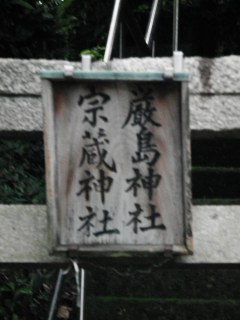 厳島神社
宗蔵神社